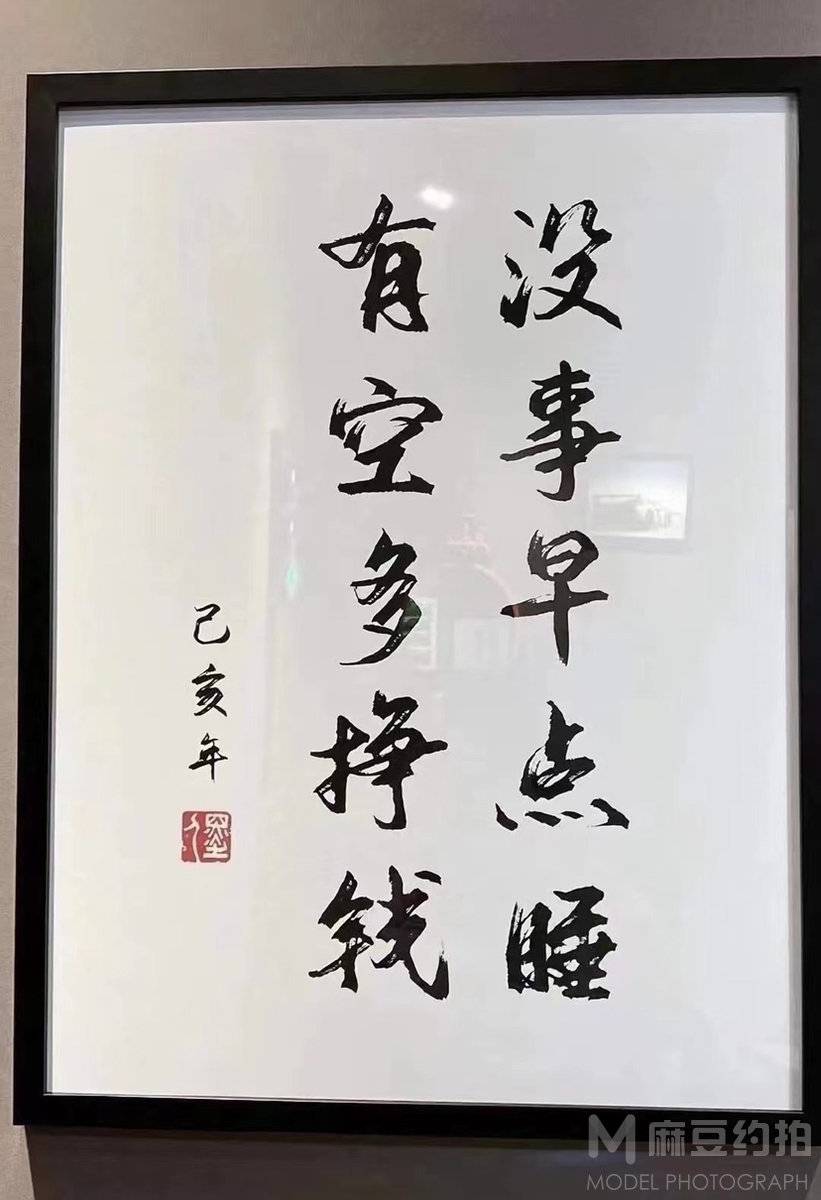 没事早点睡
有空多挣钱
己亥年
M 麻豆约拍
MODEL PHOTOGRAPH